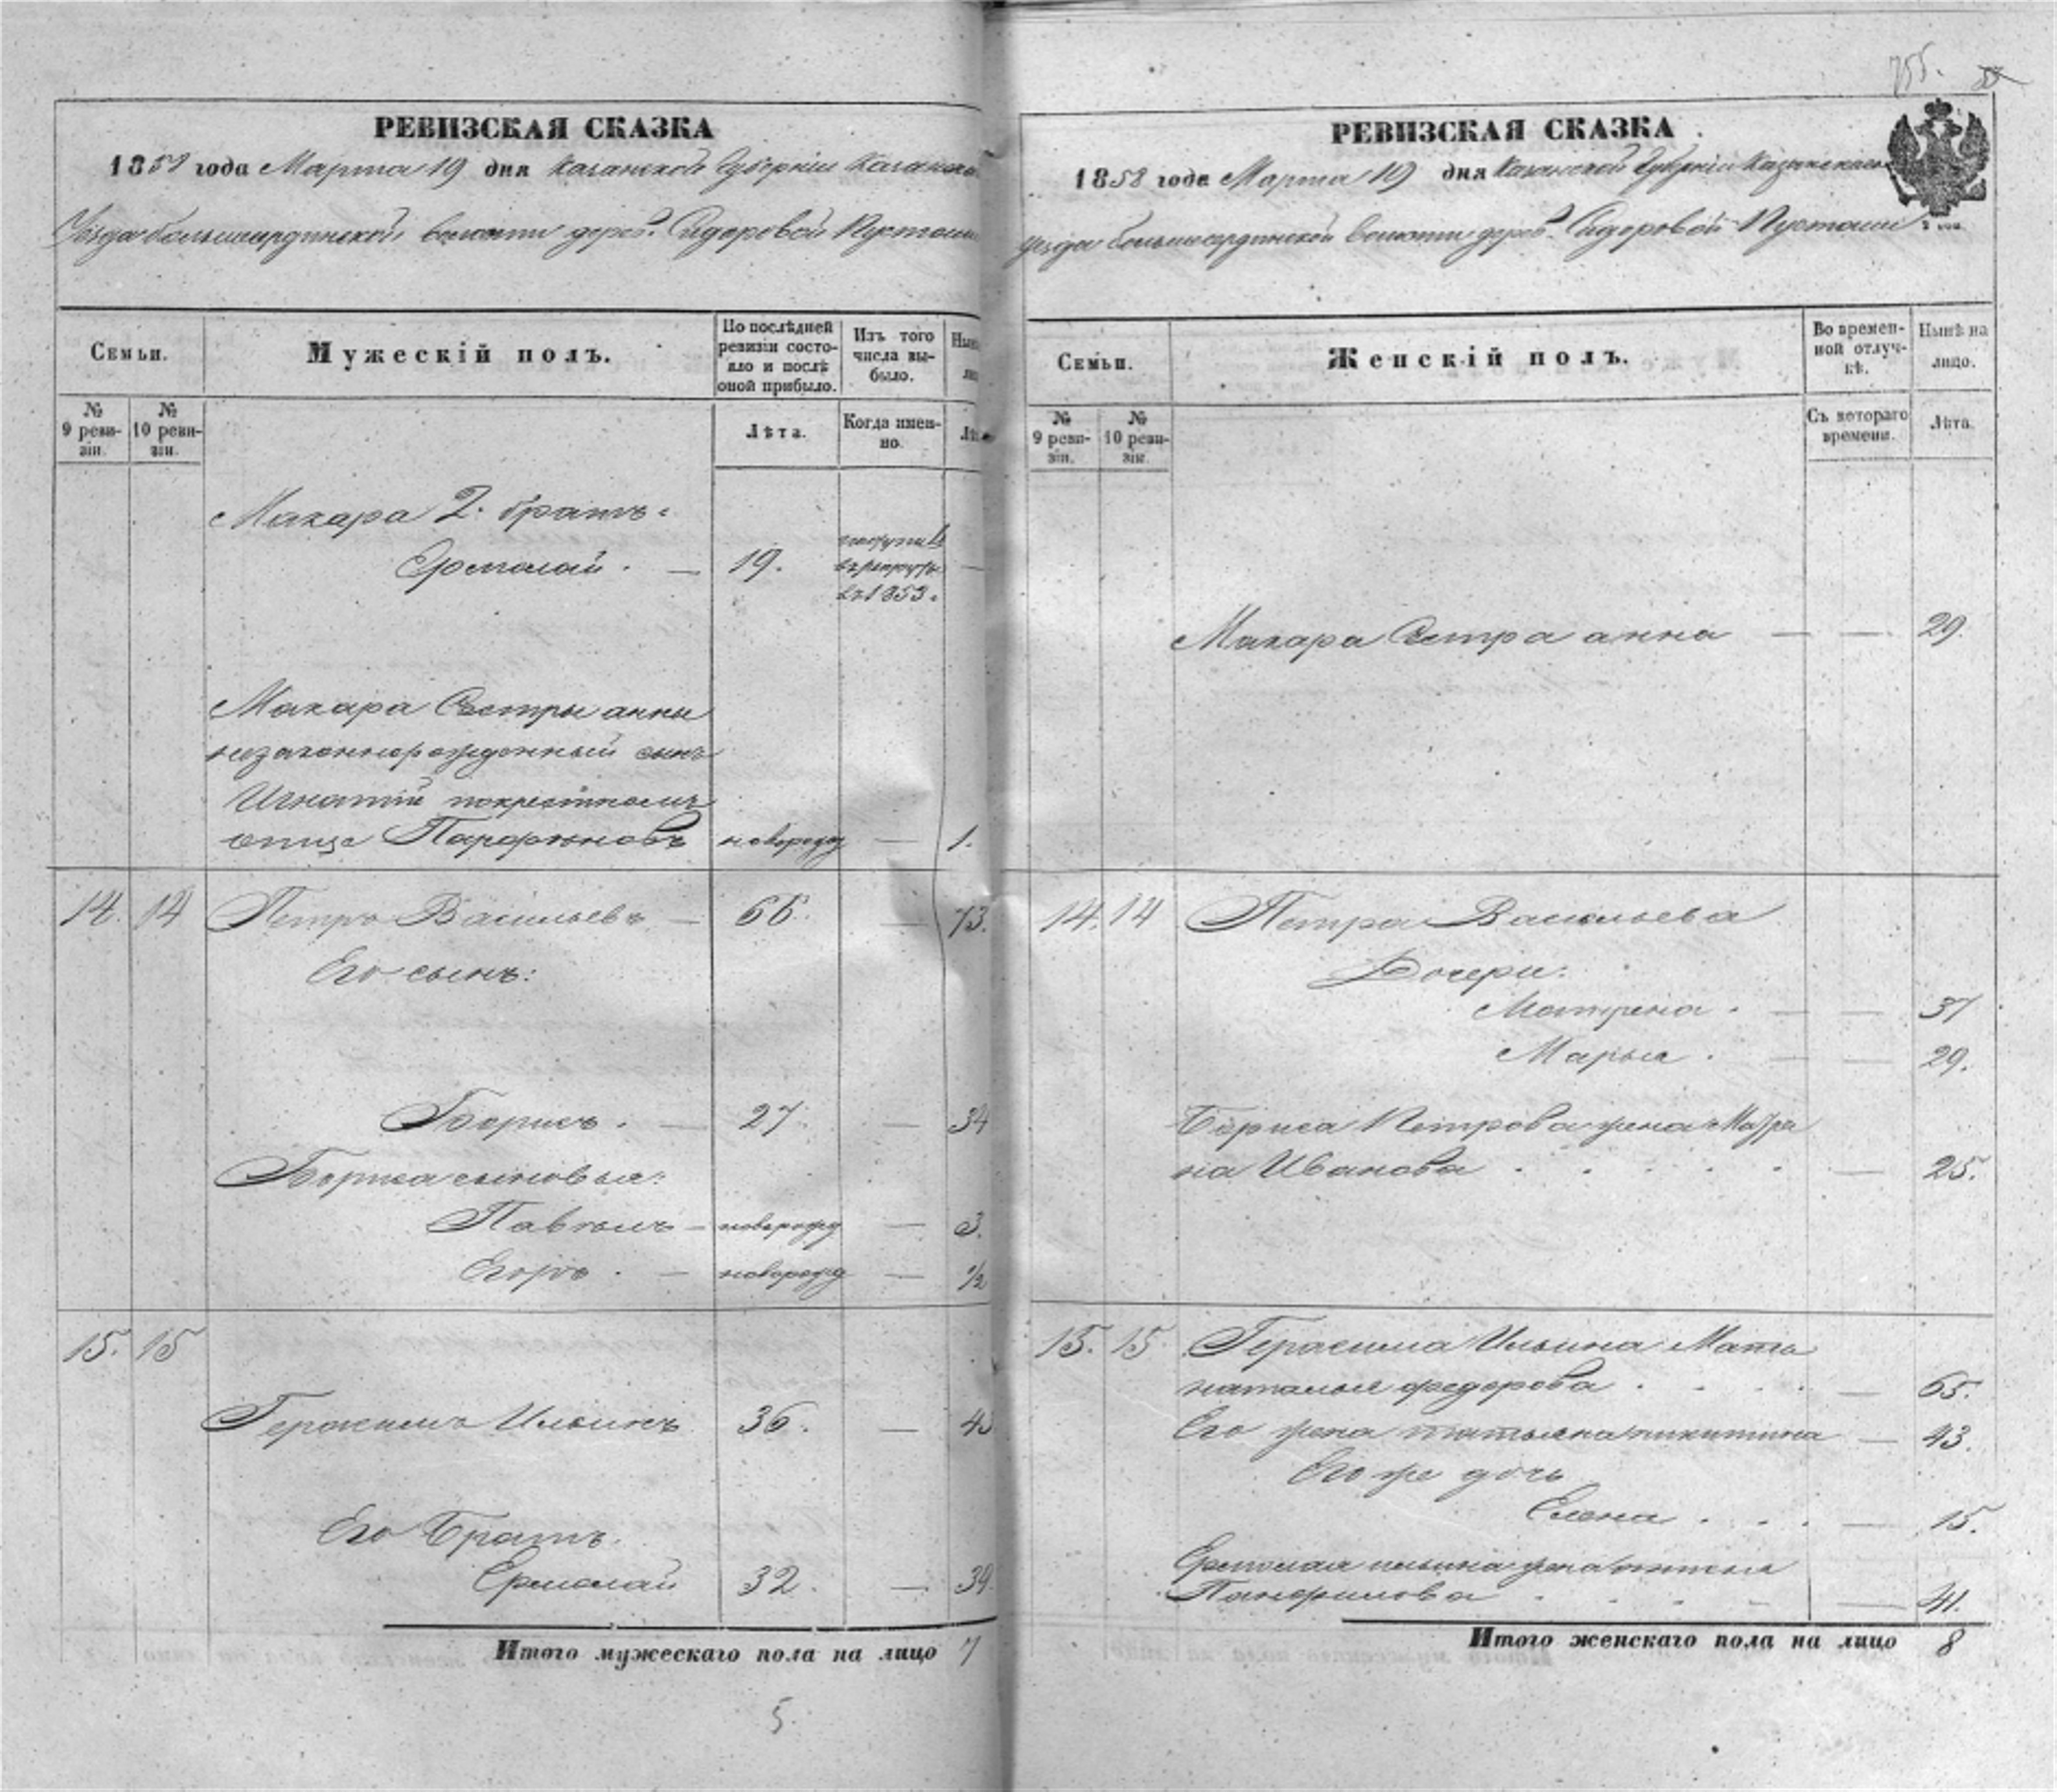 755.
РЕВИЗСКАЯ СКАЗКА
1858 года Марта 19 дня Казанской Губерніи Казанскаго
Уѣзда большеардинской волости дерев. Сидоровой Пустоши
Семьи.
Мужескій полъ.
По послѣдней ревизіи состояло и послѣ оной прибыло.
Изъ того числа выбыло.
Ны
ли
№ 9 ревизіи.
№ 10 ревизіи.
Лѣта.
Когда именно.
Лѣ
Макара 2. братъ
Ермолай. — 19. поступилъ въ рекруты въ 1853. —
Макара Сестры анны
незаконнорожденный сынъ
Игнатій покрестному
отцѣ Парфеновъ новорожд — 1.
14. 14 Петръ Васильевъ — 66. — 73.
Его сынъ:
Борисъ. — 27. — 34
Бориса сыновья:
Павелъ — новорожд — 3.
Егоръ. — новорожд — 1/2
15. 15
Герасимъ Ильинъ 36. — 43
Его Братъ.
Ермолай 32. — 39.
Итого мужескаго пола на лицо 7
5.
РЕВИЗСКАЯ СКАЗКА
1858 года Марта 19 дня Казанской Губерніи Казанскаго
уѣзда большеардинской волости дерев. Сидоровой Пустоши
Семьи.
Женскій полъ.
Во временной отлучкѣ.
Нынѣ на лицо.
№ 9 ревизіи.
№ 10 ревизіи.
Съ котораго времени.
Лѣта.
Макара Сестра анна — — 29.
14. 14 Петра Васильева
Дочери:
Матрена. — — 37
Марья. — — 29.
Бориса Петрова жена Матре
на Иванова . . . . . — 25.
15. 15. Герасима Ильина Мать
наталья федорова . . . . — 65.
Его жена татьяна никитина — 43.
Его же дочь
Елена . . . — 15.
Ермолая ильина жена
Панфилова . . . . — 41.
Итого женскаго пола на лицо 8